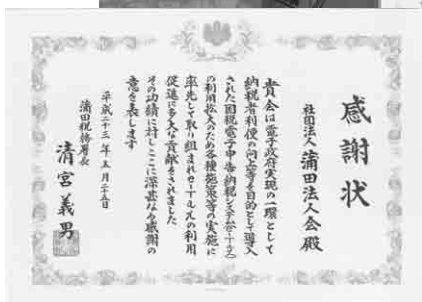 感謝状
社団法人 蒲田法人会 殿
貴会は電子政府実現の一環として
納税者利便の向上等を目的として導入
された国税電子申告・納税システム(e-Tax)
の利用拡大のため各種施策等の実施に
率先して取り組まれe-Taxの利用
促進に多大な貢献をされました
その功績に対しここに深甚なる感謝の
意を表します
平成二十三年五月二十五日
蒲田税務署長
清宮義男